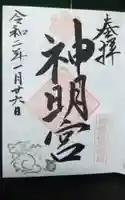 奉拝
神明宮
令和二年一月廿六日